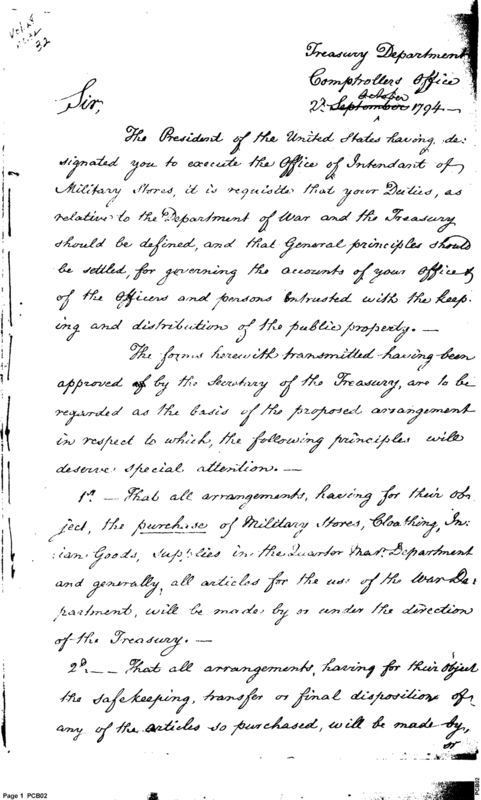 32
Treasury Department
Comptrollers Office
October
2d. September 1794 —
Sir,
The President of the United States having de:
signated you to execute the Office of Intendant of
Military Stores, it is requisite that your Duties, as
relative to the Department of War and the Treasury
should be defined, and that General principles should
be settled, for governing the accounts of your Office &
of the Officers and persons Entrusted with the keep:
ing and distribution of the public property. —
The forms herewith transmitted having been
approved of by the Secretary of the Treasury, are to be
regarded as the basis of the proposed arrangement
in respect to which, the following principles will
deserve special attention. —
1st. — That all arrangements, having for their ob:
ject, the purchase of Military Stores, Cloathing, In:
:ian Goods, Supplies in the Quarter Mar. Department
and generally, all articles for the use of the War De:
partment, will be made by or under the direction
of the Treasury. —
2d. — — That all arrangements, having for their object
the safekeeping, transfer or final disposition of
any of the articles so purchased, will be made by,
or
Page 1 PCB02
PCB02